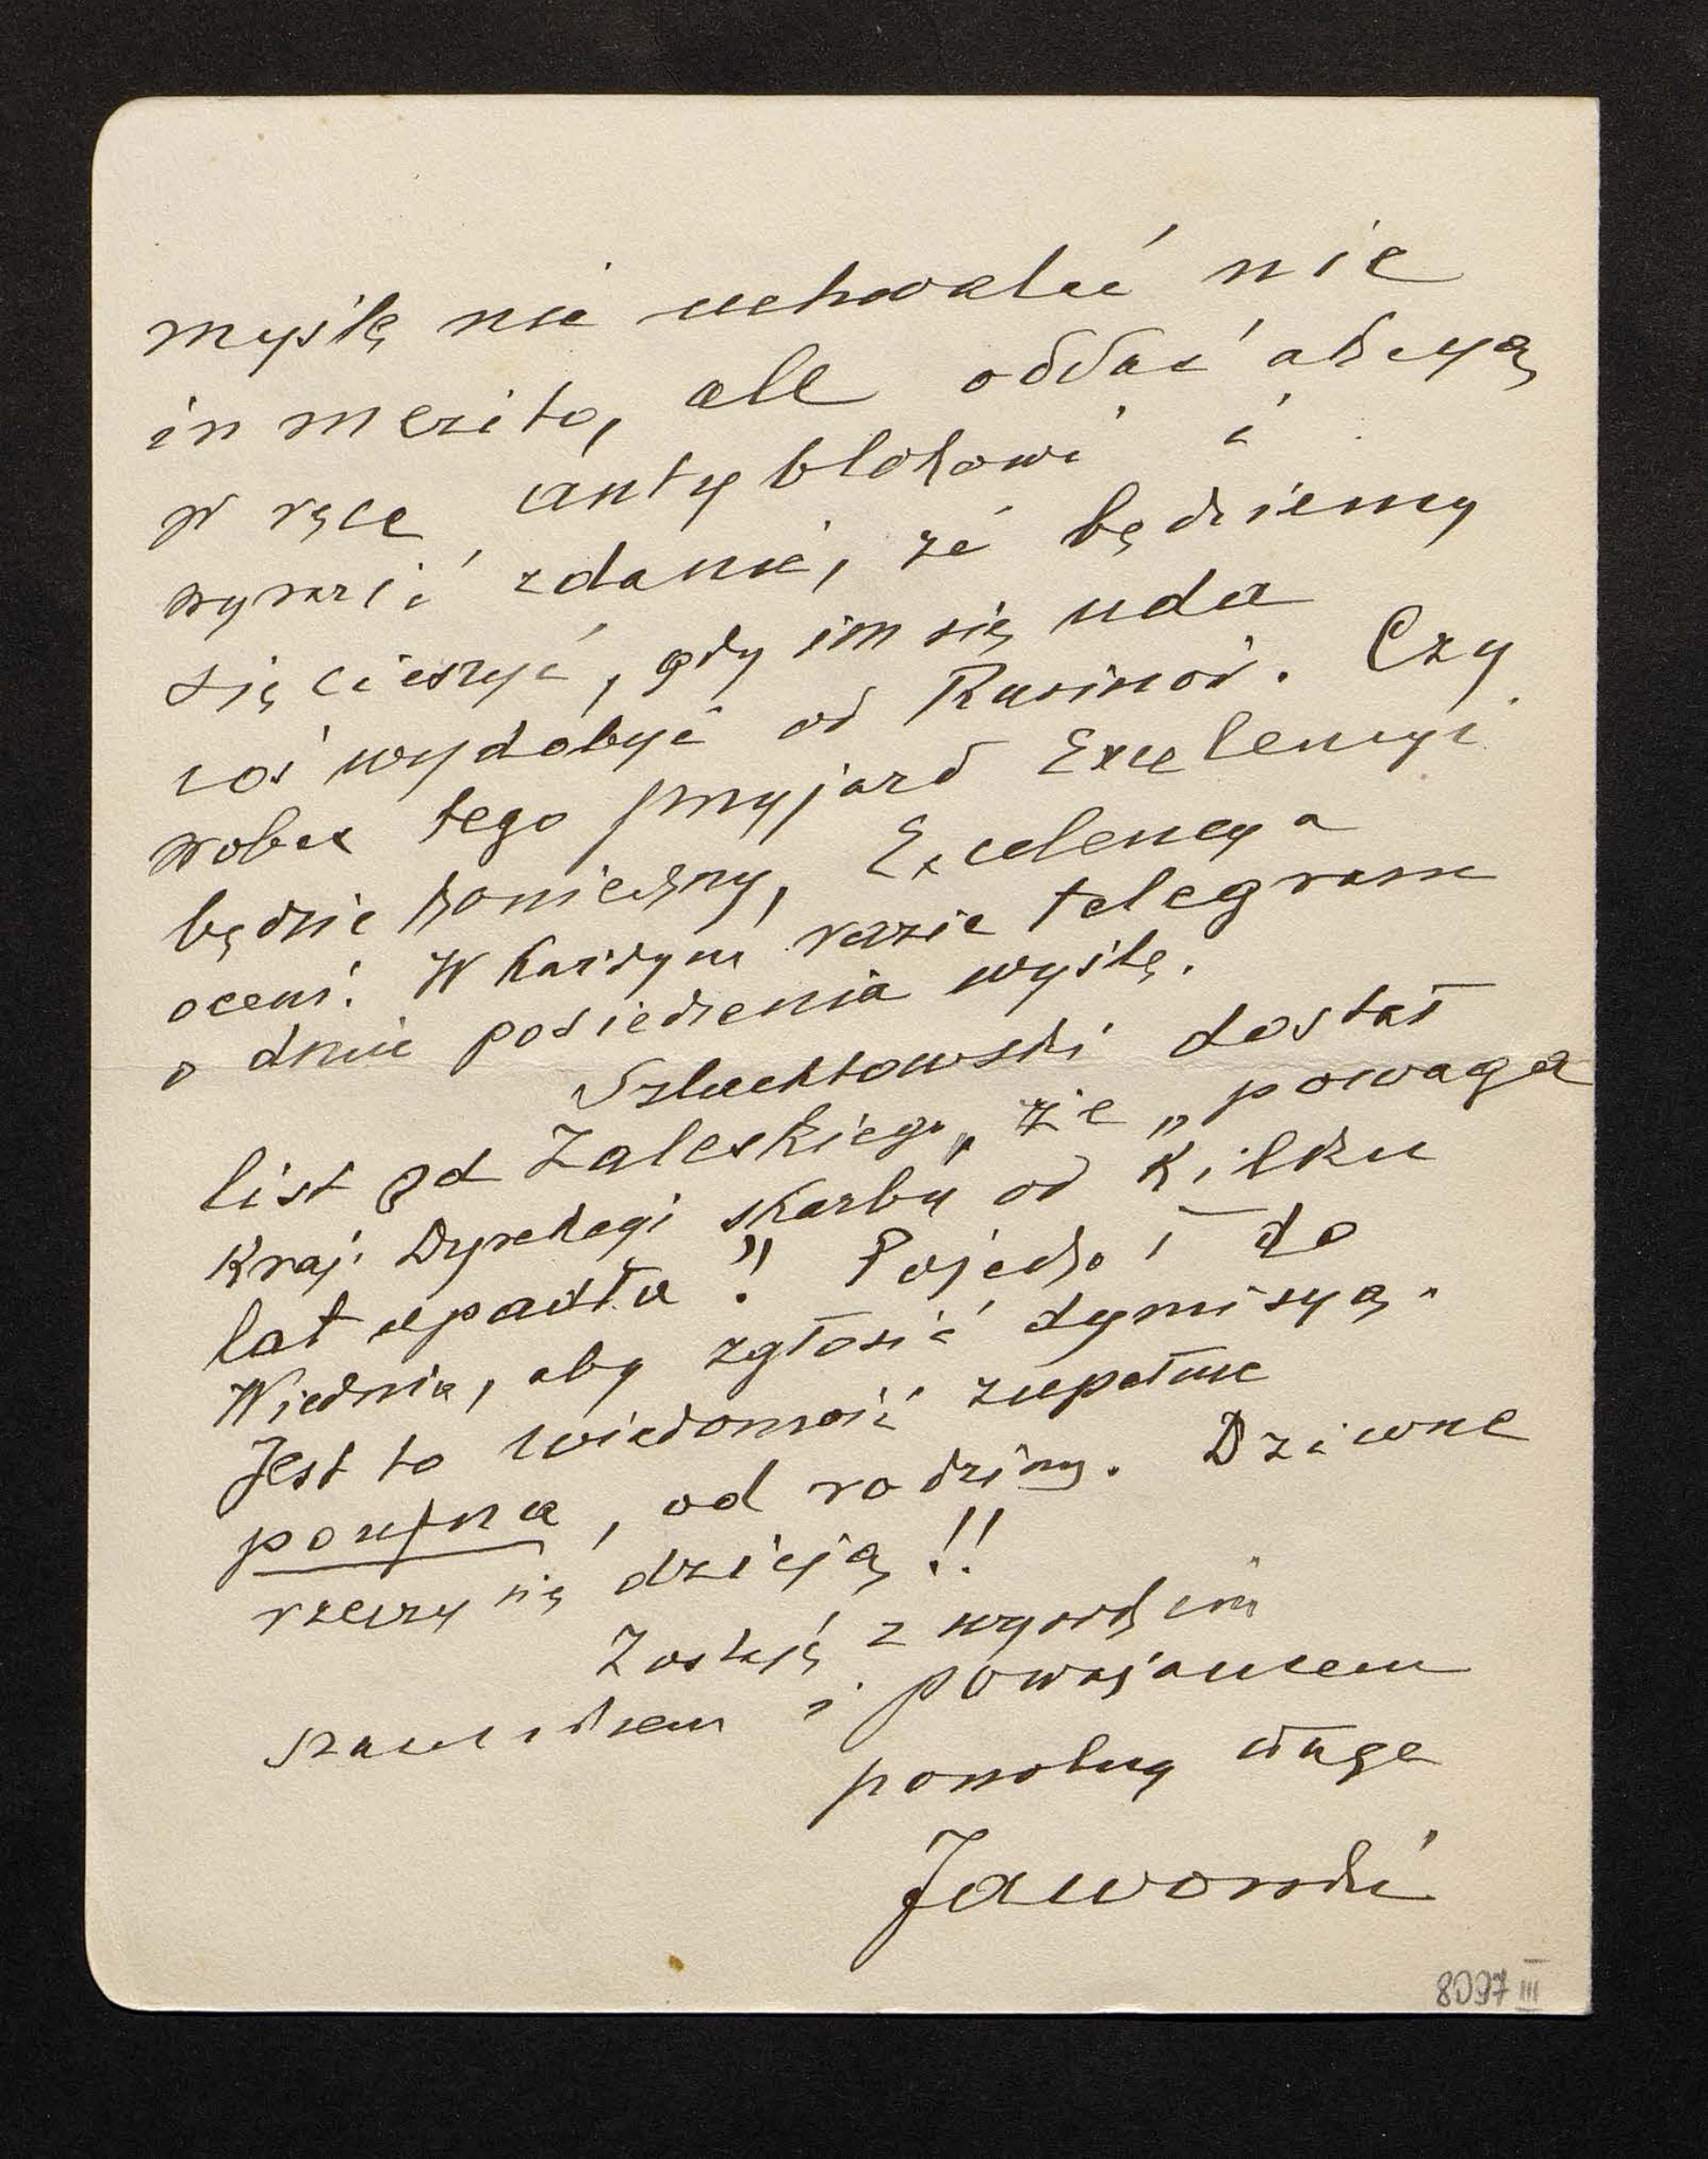 myślę nie uchwalać nic
in merito, ale oddać akcyą
w ręce antyblokowi i
wyrazić zdanie, że będziemy
się cieszyć, gdy im się uda
coś wydobyć od Rusinów. Czy
wobec tego przyjazd Excelencyi
będzie konieczny, Excelencya
oceni. W każdym razie telegram
o dniu posiedzenia wyślę.
Szlachtowski dostał
list od Zaleskiego, że „powaga
Kraj. Dyrekcyi skarbu od kilku
lat upadła!" Pojechał do
Wiednia, aby zgłosić dymisyą.
Jest to wiadomość zupełnie
poufna, od rodziny. Dziwne
rzeczy się dzieją!!
Zostaję z wysokim
szacunkiem i poważaniem
powolny sługa
Jaworski
8097 III